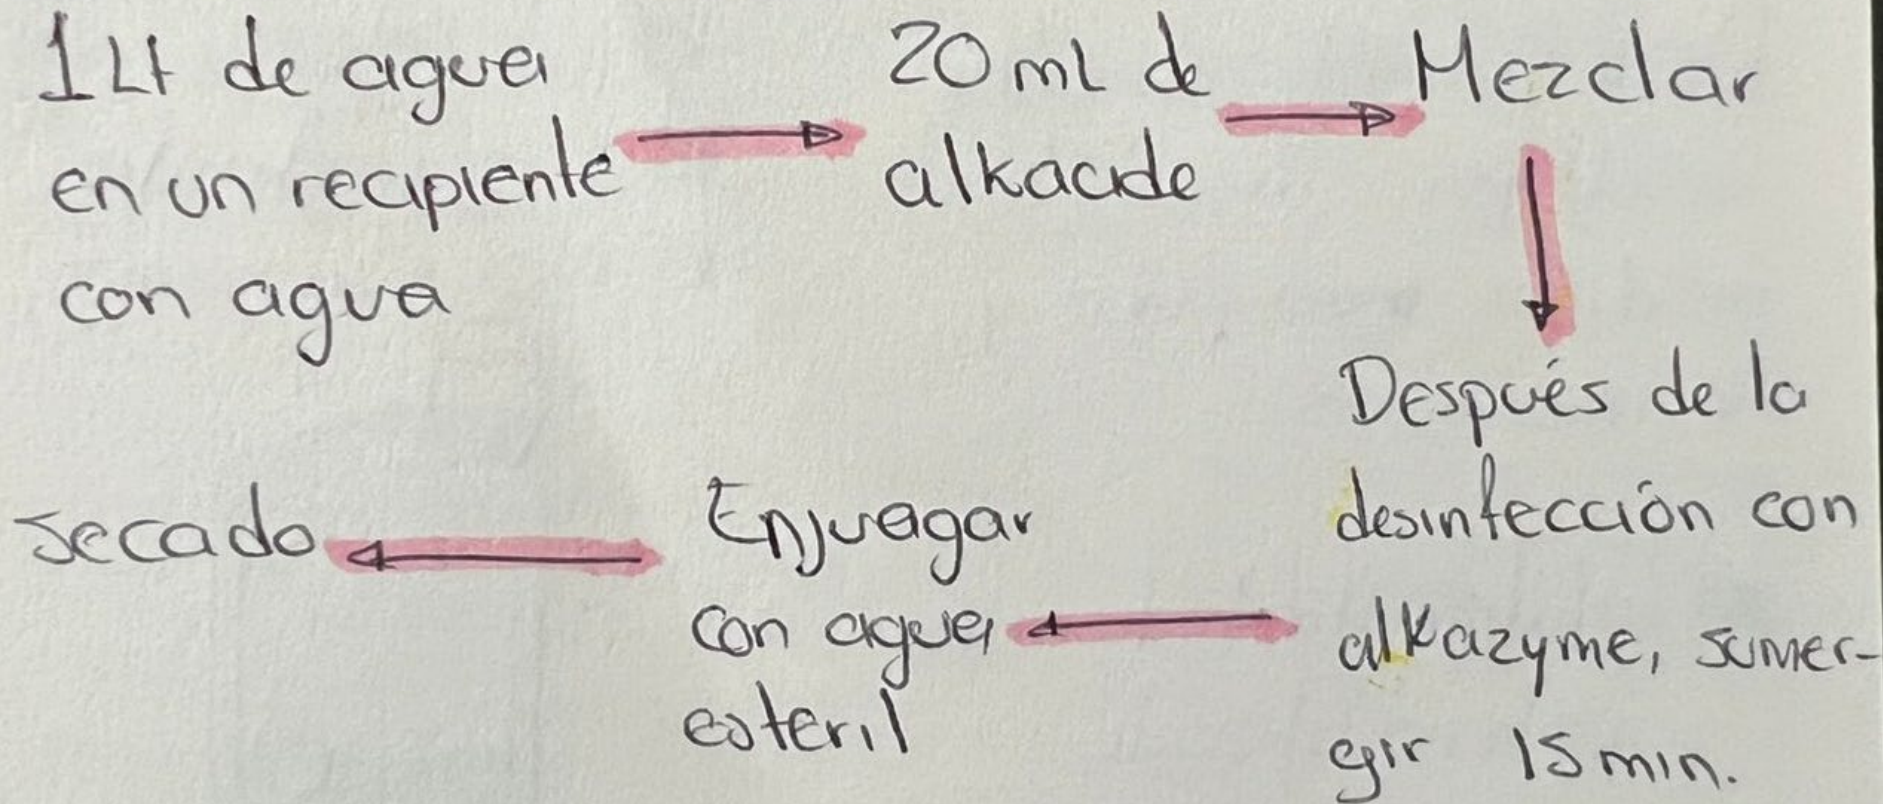 1 Lt de agua
en un recipiente
con agua
20 ml de
alkacide
Mezclar
Después de la
desinfección con
alkazyme, sumer-
gir 15 min.
Enjuagar
con agua
esteril
secado